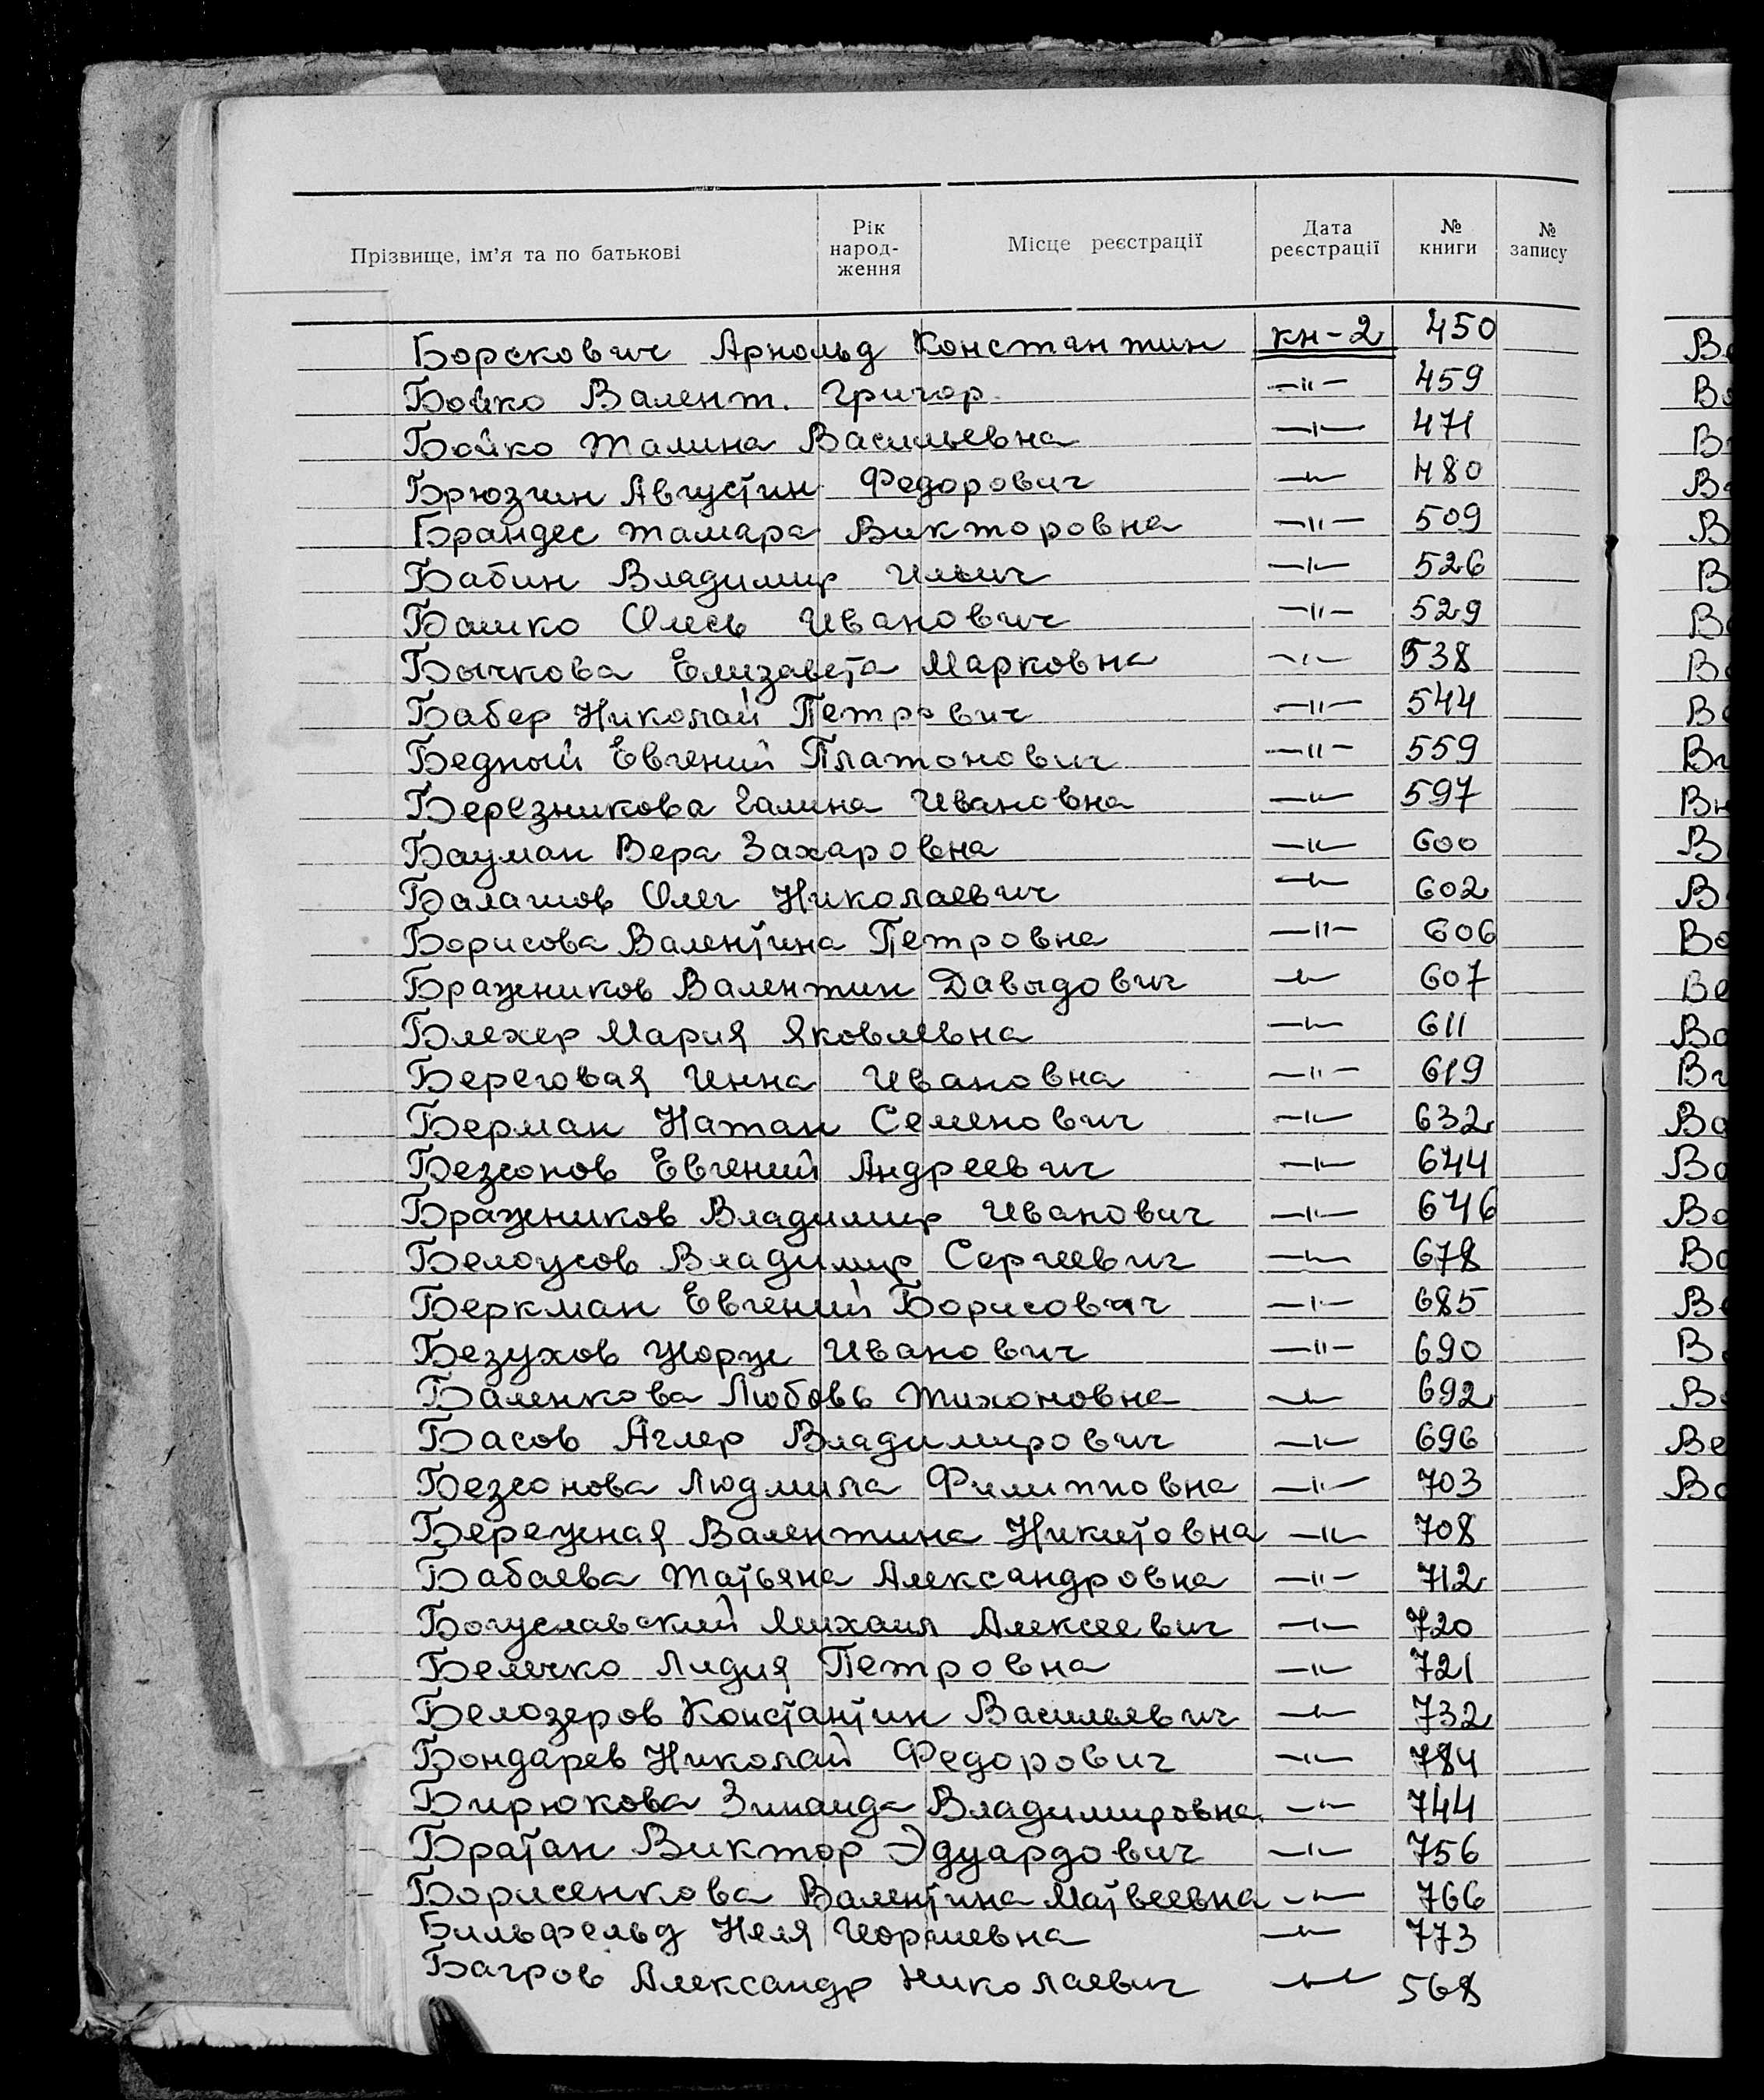 Прізвище, ім'я та по батькові Рік народ-ження Місце реєстрації Дата реєстрації № книги № запису
Борскович Арнольд Константин кн-2 450
Бойко Валент. Григор. —"— 459
Бойко Талина Васильевна —"— 471
Брюзгин Августин Федорович —"— 480
Брандес Тамара Викторовна —"— 509
Бабин Владимир Ильич —"— 526
Башко Олесь Иванович —"— 529
Бычкова Елизавета Марковна —"— 538
Бабер Николай Петрович —"— 544
Бедный Евгений Платонович —"— 559
Березникова Галина Ивановна —"— 597
Бауман Вера Захаровна —"— 600
Балашов Олег Николаевич —"— 602
Борисова Валентина Петровна —"— 606
Бражников Валентин Давыдович —"— 607
Блехер Мария Яковлевна —"— 611
Береговая Инна Ивановна —"— 619
Берман Натан Семенович —"— 632
Безсонов Евгений Андреевич —"— 644
Бражников Владимир Иванович —"— 646
Белоусов Владимир Сергеевич —"— 678
Беркман Евгений Борисович —"— 685
Безухов Жорж Иванович —"— 690
Баленкова Любовь Тихоновна —"— 692
Басов Аглер Владимирович —"— 696
Безсонова Людмила Филипповна —"— 703
Бережная Валентина Никитовна —"— 708
Бабаева Татьяна Александровна —"— 712
Богуславский Михаил Алексеевич —"— 720
Белечко Лидия Петровна —"— 721
Белозеров Константин Васильевич —"— 732
Бондарев Николай Федорович —"— 784
Бирюкова Зинаида Владимировна —"— 744
Братан Виктор Эдуардович —"— 756
Борисенкова Валентина Матвеевна —"— 766
Бильфельд Неля Иоргиевна —"— 773
Багров Александр Николаевич —"— 568